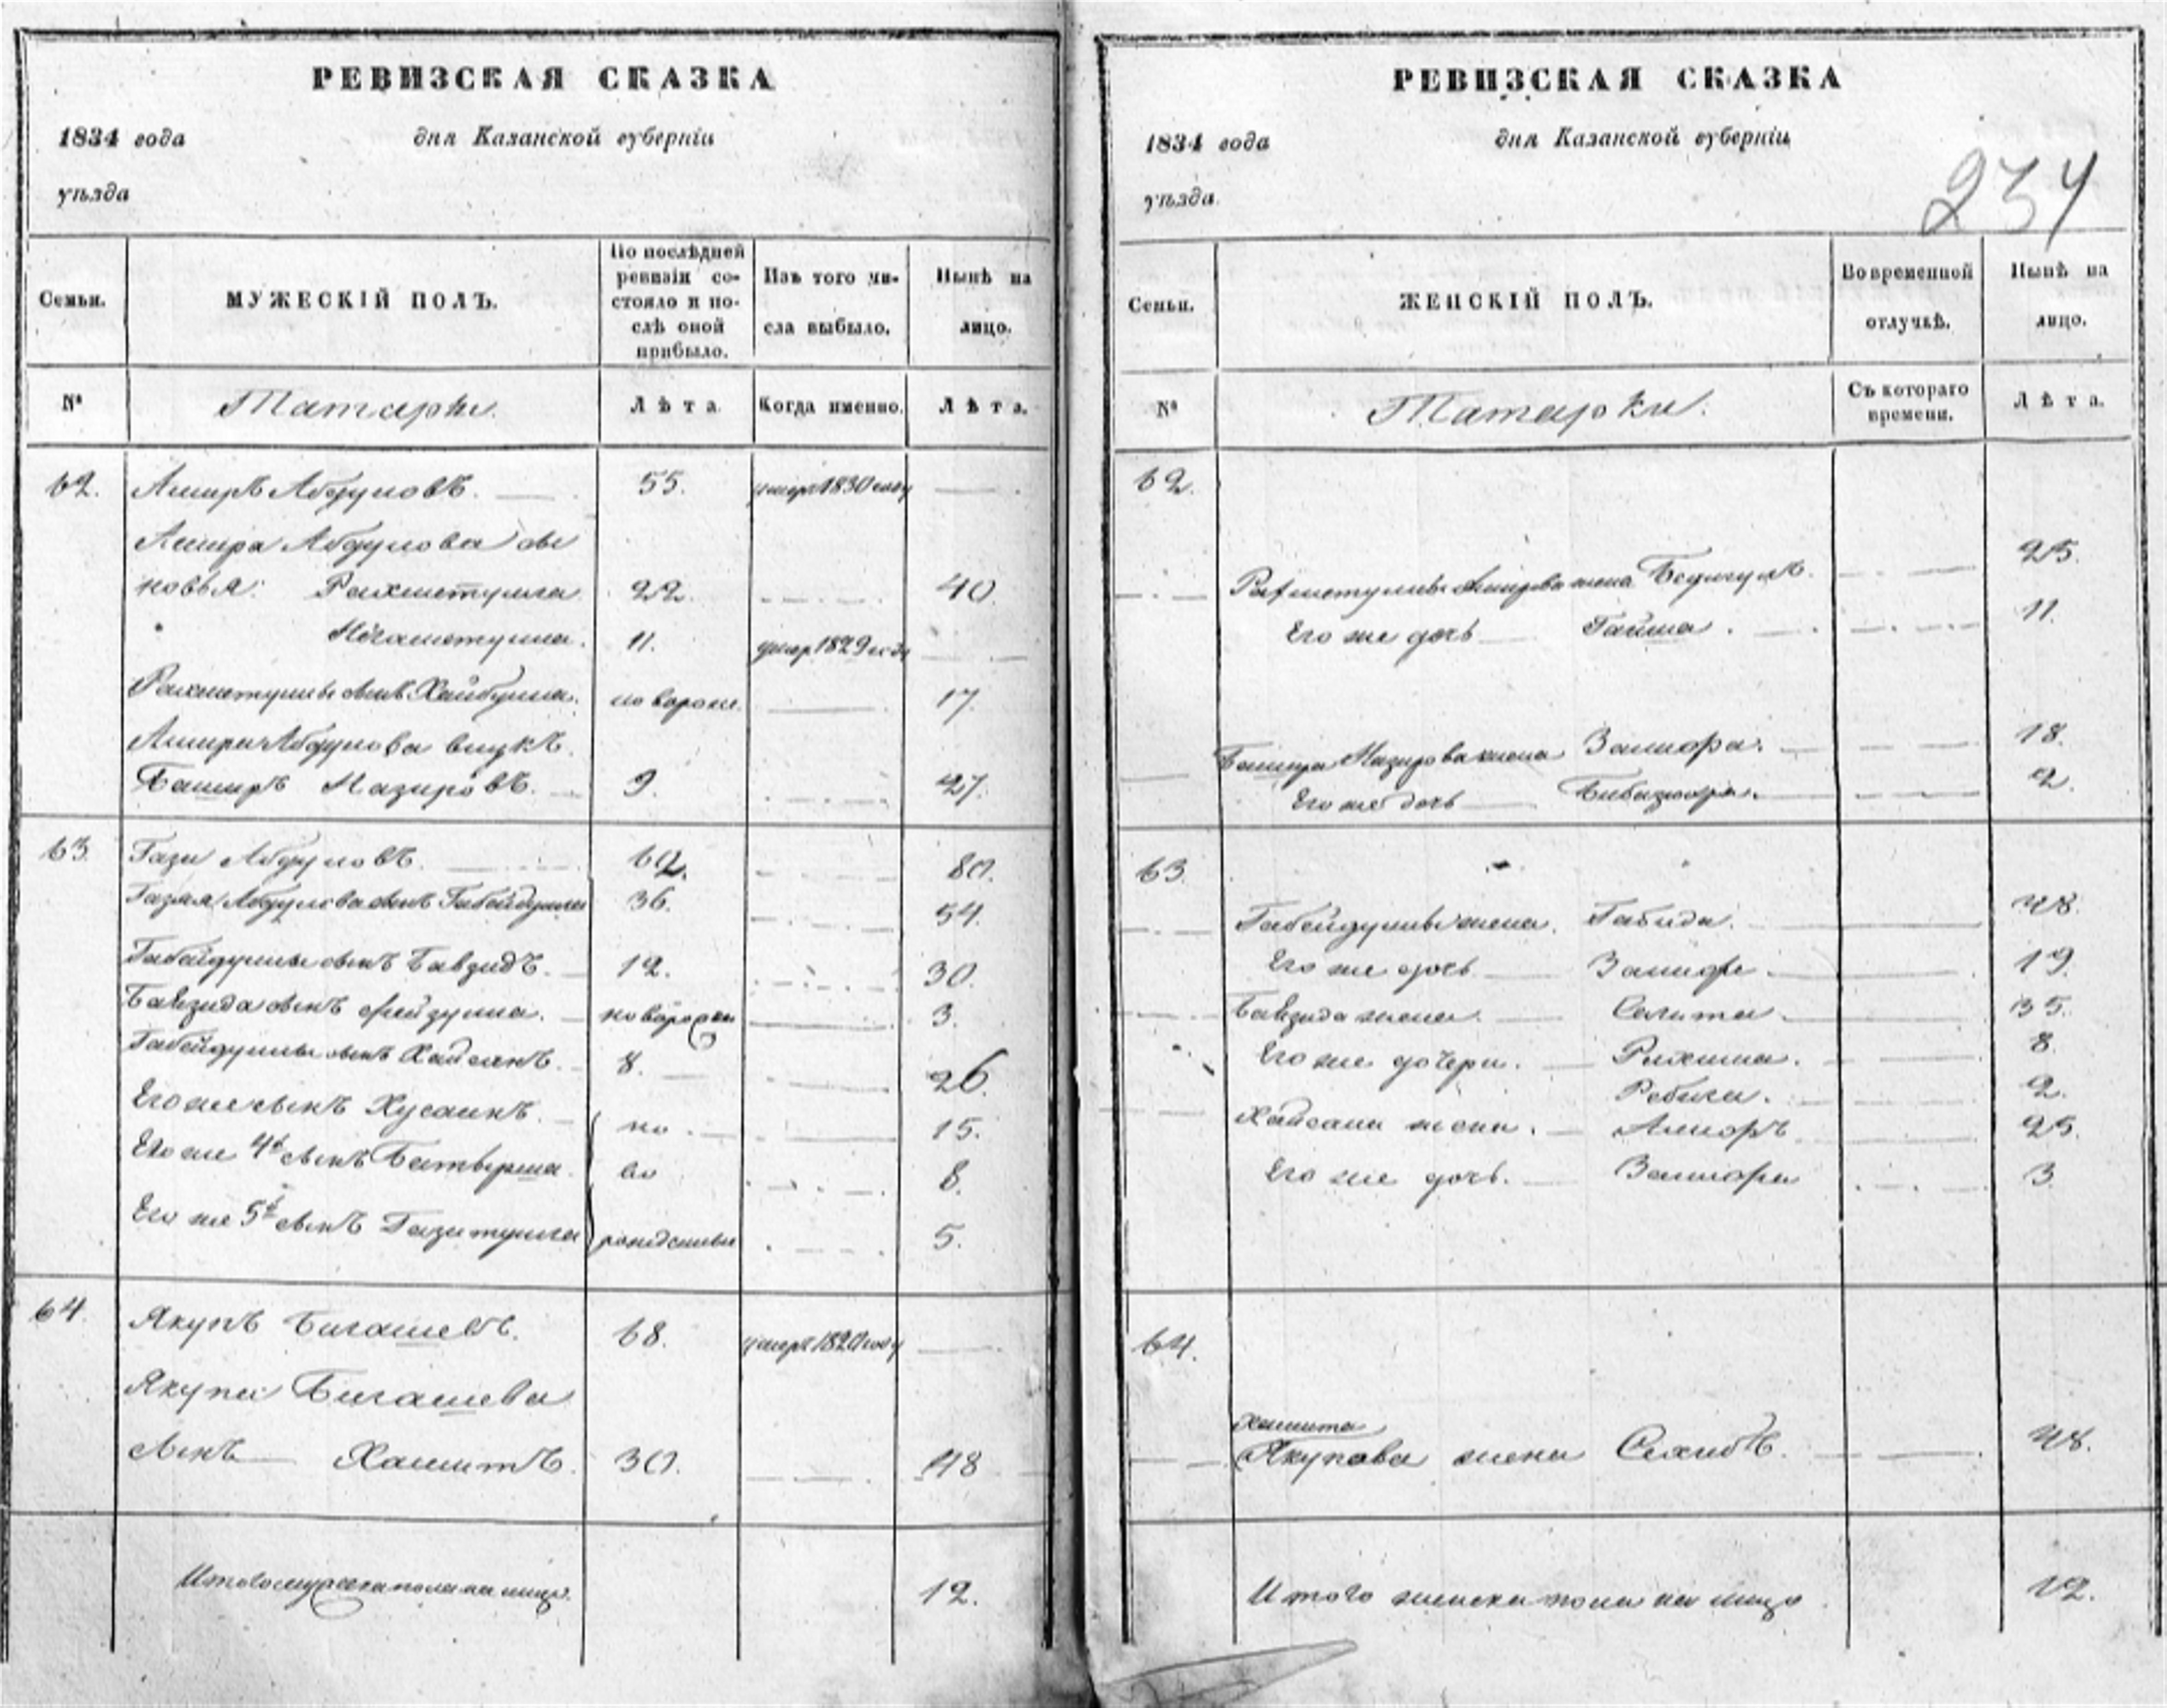 РЕВИЗСКАЯ СКАЗКА
1834 года дня Казанской губерніи
уѣзда
Семьи. МУЖЕСКІЙ ПОЛЪ. По послѣдней ревизіи состояло и послѣ оной прибыло. Изъ того числа выбыло. Нынѣ на лицо.
№ Татары. Лѣта Когда именно. Лѣта.
62. Амиръ Абдуловъ. 55. умеръ 1830 году
Амира Абдулова сы
новья: Рахметулла 22. 40
Негаметулла. 11. умер 1829 году
Рахметуллы сынъ Хайбулла. новорож. 17.
Амира Абдулова внукъ.
Баширъ Назировъ. 9. 27.
63. Гази Абдуловъ. 62. 80.
Газыя Абдулова сынъ Габейдулла 36. 54.
Габайдуллы сынъ Бавзидъ. 12. 30.
Бавзида сынъ Фейзулла. новорожен 3.
Габейдуллы сынъ Хайсанъ. 8. 26.
Его же сынъ Хусаинъ. но 15.
Его же 4й сынъ Батырша. во 8.
Его же 5й сынъ Газитулла рожденны 5.
64. Якупъ Бигашевъ. 68. умеръ 1820 году
Якупа Бигашева
сынъ Хамитъ. 30. 48
Итого мужеска пола на лицо. 12.
РЕВИЗСКАЯ СКАЗКА
1834 года дня Казанской губерніи
уѣзда.
234
Семьи. ЖЕНСКІЙ ПОЛЪ. Во временной отлучкѣ. Нынѣ на лицо.
№ Татарки. Съ котораго времени. Лѣта.
62.
Рахметуллы Амирова жена 25.
Его же дочь Гайша. 11.
Башира Назирова жена Замфира. 18.
Его же дочь 2.
63.
Габейдуллы жена. Габида. 48.
Его же дочь 19.
Бавзида жена. Салима. 35.
Его же дочери. Рахима. 8.
Ребига. 2.
Хайсана жена. 25.
Его же дочь. 3
64.
Хамита
Якупова жена Сахибъ. 48.
Итого женска пола на лицо 12.